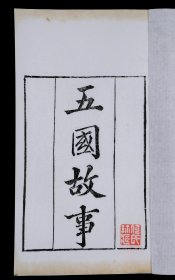 五國故事